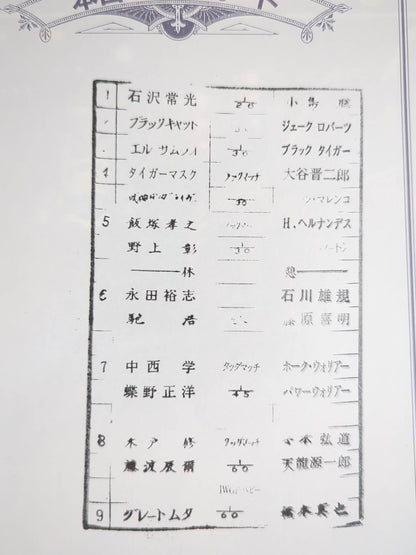 1 石沢常光 1/20
ブラックキャット ジェーク ロバーツ
エル サムライ 1/30 ブラック タイガー
4 タイガーマスク タッグマッチ 大谷晋二郎
1/30 マレンコ
5 飯塚孝之 H.ヘルナンデス
野上 彰 1/30
休 憩
6 永田裕志 石川雄規
馳 浩 藤原喜明
7 中西 学 タッグマッチ ホーク・ウォリアー
蝶野正洋 1/45 パワーウォリアー
8 木戸 修 タッグマッチ 弘道
藤波辰爾 1/60 天龍源一郎
IWGPヘビー
9 グレートムタ 1/60 橋本真也